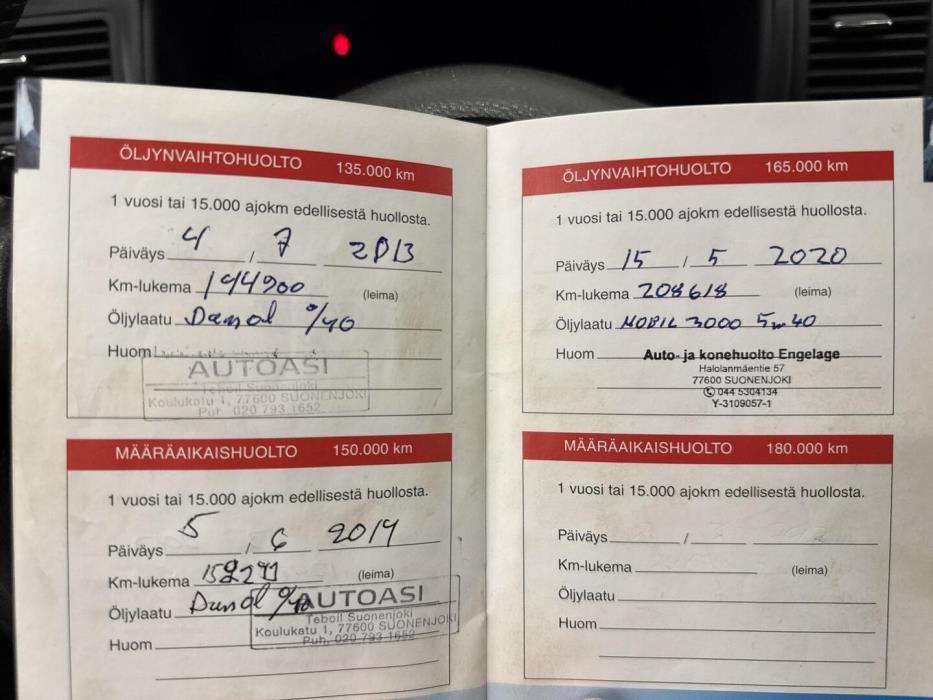 ÖLJYNVAIHTOHUOLTO 135.000 km
1 vuosi tai 15.000 ajokm edellisestä huollosta.
Päiväys 4 / 7 2013
Km-lukema 144900 (leima)
Öljylaatu 0/40
Huom
AUTOASI
Teboil Suonenjoki
Koulukatu 1, 77600 SUONENJOKI
Puh. 020 793 1652
MÄÄRÄAIKAISHUOLTO 150.000 km
1 vuosi tai 15.000 ajokm edellisestä huollosta.
Päiväys 5 / 6 2014
Km-lukema (leima)
Öljylaatu
AUTOASI
Teboil Suonenjoki
Koulukatu 1, 77600 SUONENJOKI
Puh. 020 793 1652
Huom
ÖLJYNVAIHTOHUOLTO 165.000 km
1 vuosi tai 15.000 ajokm edellisestä huollosta.
Päiväys 15 / 5 2020
Km-lukema 208618 (leima)
Öljylaatu MOBIL 3000 5w40
Huom Auto- ja konehuolto Engelage
Halolanmäentie 57
77600 SUONENJOKI
✆ 044 5304134
Y-3109057-1
MÄÄRÄAIKAISHUOLTO 180.000 km
1 vuosi tai 15.000 ajokm edellisestä huollosta.
Päiväys /
Km-lukema (leima)
Öljylaatu
Huom